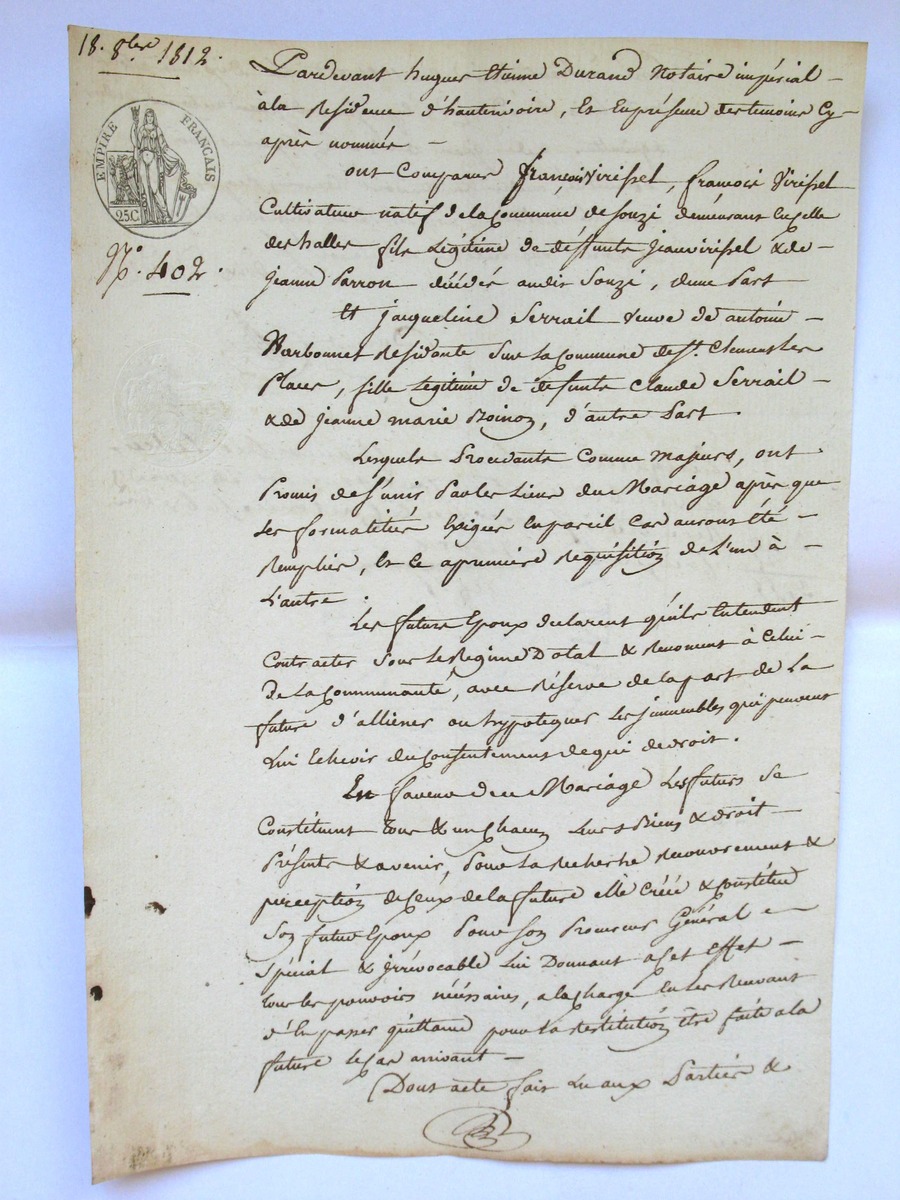 18. 8bre 1812.
EMPIRE FRANÇAIS
25 C
N° 402.
Pardevant hugues Etienne Durand Notaire impérial
à la Residence d'hauterivoire, Et En présence des temoins Cy
après nommés
ont Comparu françois Virissel, francois Virissel
Cultivateur natif de la Commune de Souzi demeurant En Celle
des halles fils Légitime de deffunts Jean virissel & de
jeanne Parron décédés audit Souzi, d'une Part
Et jacqueline Serrail veuve de antoine
Narbonnet Residante Sur la Commune de St. Clement Les
Places, fille Légitime de defunts Claude Serrail
& de jeanne marie Boinon, d'autre Part.
Lesquels Procedants Comme majeurs, ont
Promis de S'unir Par les Liens du Mariage après que
Les formalitiés Exigées En pareil Cas auront Eté
Remplies, Et Ce a premiere Requisition de L'un à
L'autre.
Les futurs Epoux declarent qu'ils Entendent
Contracter Sous le Regime Dotal & Renoncent à Celui
De la Communauté, avec Réserve de la part de La
future d'alliener ou hypotequer Les immeubles qui peuvent
Lui Echeoir du Consentement de qui de droit.
En faveur de ce Mariage Les futurs Se
Constituent tous & un Chacun Leurs Biens & droit
Présents & avenir, Pour La Recherche Recouvrement &
perception de Ceux de la future elle Créée & Constitue
Son futur Epoux Pour Son Procureur Général
Spécial & jrrévocable Lui Donnant a Cet Effet
tous les pouvoirs nécessaires, a la Charge En Les Recevant
d'En passer quittance pour La Restitution Etre faite a la
future le Cas arrivant
Dont acte fait Lu aux Parties &